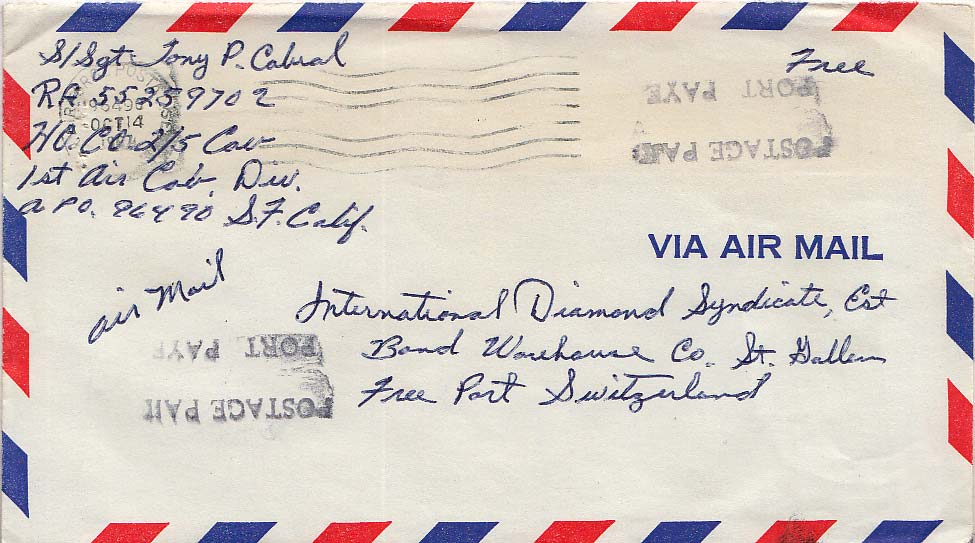 S/Sgt. Tony P. Cabral
RA 55259702
HQ Co 2/5 Cav
1st Air Cav. Div.
A P.O. 96490 S.F. Calif.
OCT 14
Free
PORT PAYE
POSTAGE PAID
VIA AIR MAIL
air Mail
International Diamond Syndicate, Est
Bond Warehouse Co. St. Gallen
Free Port Switzerland
PORT PAYE
POSTAGE PAID